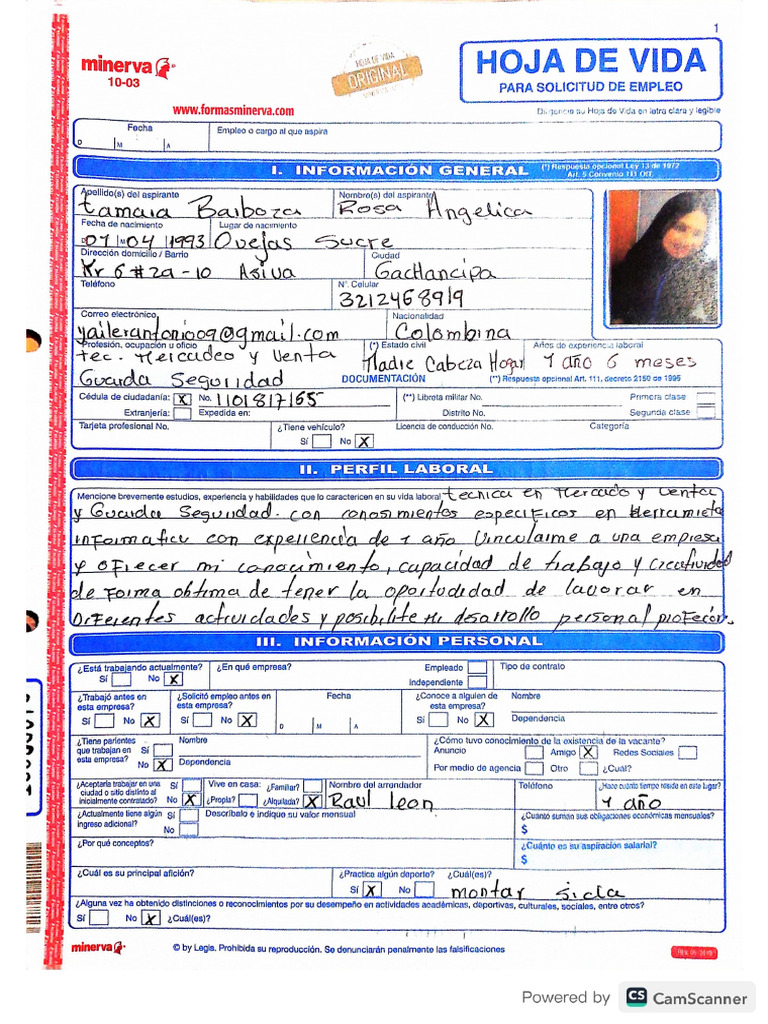 1
minerva
10-03
HOJA DE VIDA
ORIGINAL
HOJA DE VIDA
PARA SOLICITUD DE EMPLEO
www.formasminerva.com
Diligencie su Hoja de Vida en letra clara y legible
Fecha
Empleo o cargo al que aspira
D M A
I. INFORMACIÓN GENERAL
(*) Respuesta opcional Ley 13 de 1972
Art. 5 Convenio 111 OIT.
Apellido(s) del aspirante Nombre(s) del aspirante
tamara Barboza Rosa Angelica
Fecha de nacimiento Lugar de nacimiento
D 07 M 04 A 1993 Ovejas Sucre
Dirección domicilio / Barrio Ciudad
Kr 6 # 2a - 10 Asiva Gachancipa
Teléfono N°. Celular
3212468919
Correo electrónico Nacionalidad
yailerantonio09@gmail.com Colombina
Profesión, ocupación u oficio (*) Estado civil Años de experiencia laboral
tec. Mercadeo y Venta Madre Cabeza Hogar 1 año 6 meses
Guarda Seguridad
DOCUMENTACIÓN (**) Respuesta opcional Art. 111, decreto 2150 de 1995
Cédula de ciudadanía: X No. 1101817165 (**) Libreta militar No. Primera clase
Extranjería: Expedida en: Distrito No. Segunda clase
Tarjeta profesional No. ¿Tiene vehículo? Licencia de conducción No. Categoría
Sí No X
II. PERFIL LABORAL
Mencione brevemente estudios, experiencia y habilidades que lo caractericen en su vida laboral tecnica en Mercado y venta
y Guarda Seguridad. con conosimientos especificos en Herramieta
informatica con experiencia de 1 año Vincularme a una empresa
y ofrecer mi conocimiento, capacidad de trabajo y creatividad
de forma obtima de tener la oportudidad de lavorar en
Diferentes actividades y posibilite mi desarollo personal profecion.
III. INFORMACIÓN PERSONAL
¿Está trabajando actualmente? ¿En qué empresa? Empleado Tipo de contrato
Sí No X Independiente
¿Trabajó antes en esta empresa? ¿Solicitó empleo antes en esta empresa? Fecha ¿Conoce a alguien de esta empresa? Nombre
Sí No X Sí No X D M A Sí No X Dependencia
¿Tiene parientes que trabajan en esta empresa? Sí No X Nombre ¿Cómo tuvo conocimiento de la existencia de la vacante?
Anuncio Amigo X Redes Sociales
Dependencia Por medio de agencia Otro ¿Cuál?
¿Aceptaría trabajar en una ciudad o sitio distinto al inicialmente contratado? Sí No X Vive en casa: ¿Familiar? ¿Propia? ¿Alquilada? X Nombre del arrendador Teléfono ¿Hace cuánto tiempo reside en este lugar?
Raul leon 1 año
¿Actualmente tiene algún ingreso adicional? Sí No Descríbalo e indique su valor mensual ¿Cuánto suman sus obligaciones económicas mensuales?
$
¿Por qué conceptos? ¿Cuánto es su aspiración salarial?
$
¿Cuál es su principal afición? ¿Practica algún deporte? ¿Cuál(es)?
Sí X No montar sicla
¿Alguna vez ha obtenido distinciones o reconocimientos por su desempeño en actividades académicas, deportivas, culturales, sociales, entre otros?
Sí No X ¿Cuál(es)?
minerva
© by Legis. Prohibida su reproducción. Se denunciarán penalmente las falsificaciones
Powered by CS CamScanner